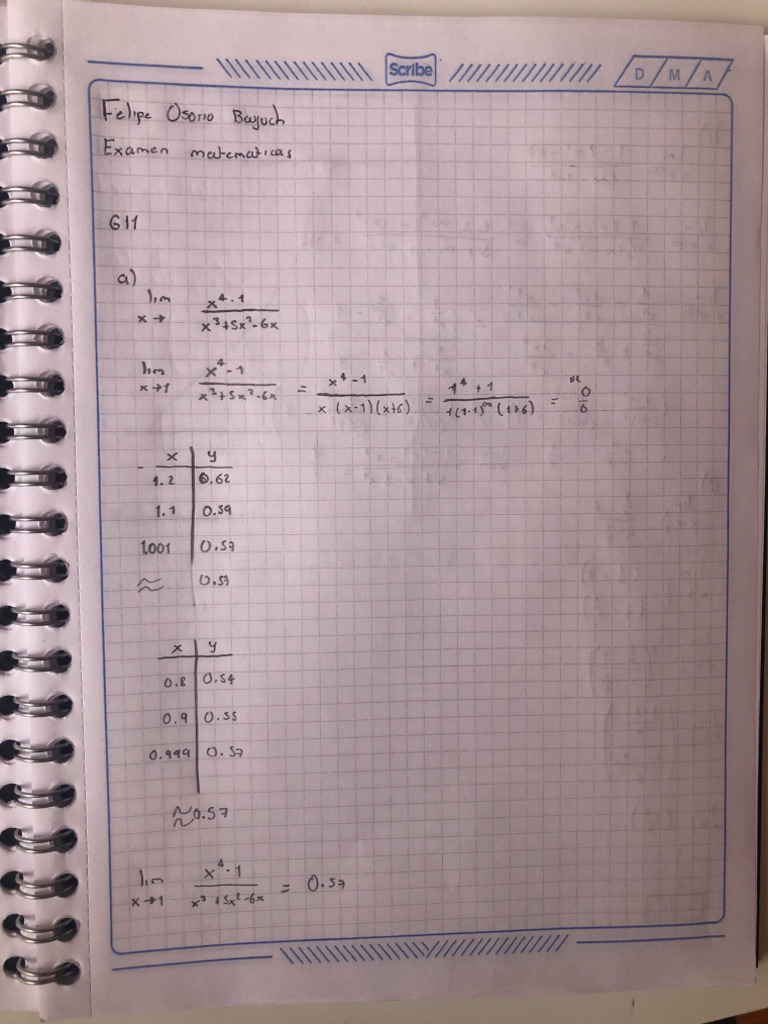 Scribe
D / M / A
Felipe Osorio Bayuch
Examen matematicas
G11
a)
lim x→ x⁴-1 / x³+5x²-6x
lim x→1 x⁴-1 / x³+5x²-6x = x⁴-1 / x (x-1)(x+6) = 1⁴+1 / 1(1-1)(1+6) = 0/0
x | y
1.2 | 0.62
1.1 | 0.59
1.001 | 0.57
≈ 0.57
x | y
0.8 | 0.54
0.9 | 0.55
0.999 | 0.57
≈ 0.57
lim x→1 x⁴-1 / x³+5x²-6x = 0.57